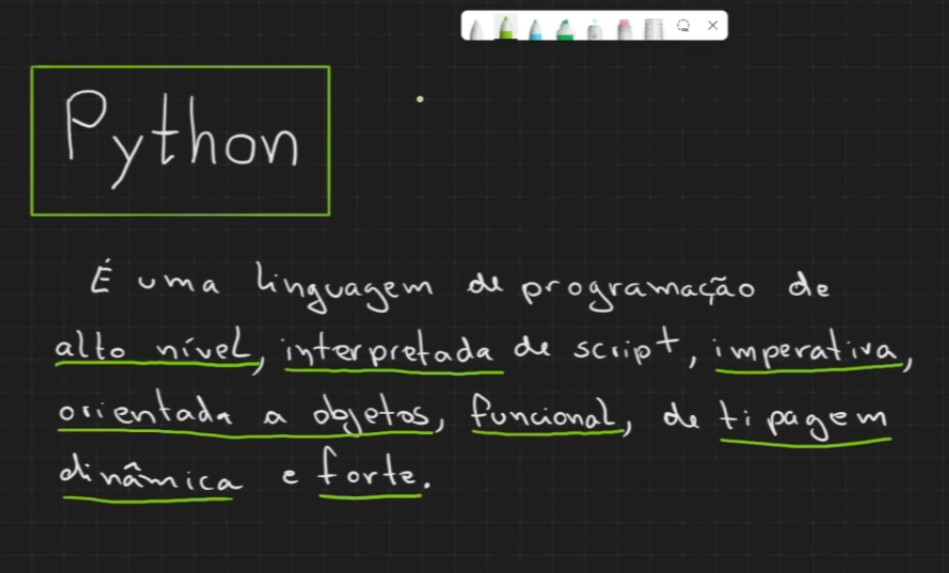 Python
É uma linguagem de programação de
alto nível, interpretada de script, imperativa,
orientada a objetos, funcional, de tipagem
dinâmica e forte.